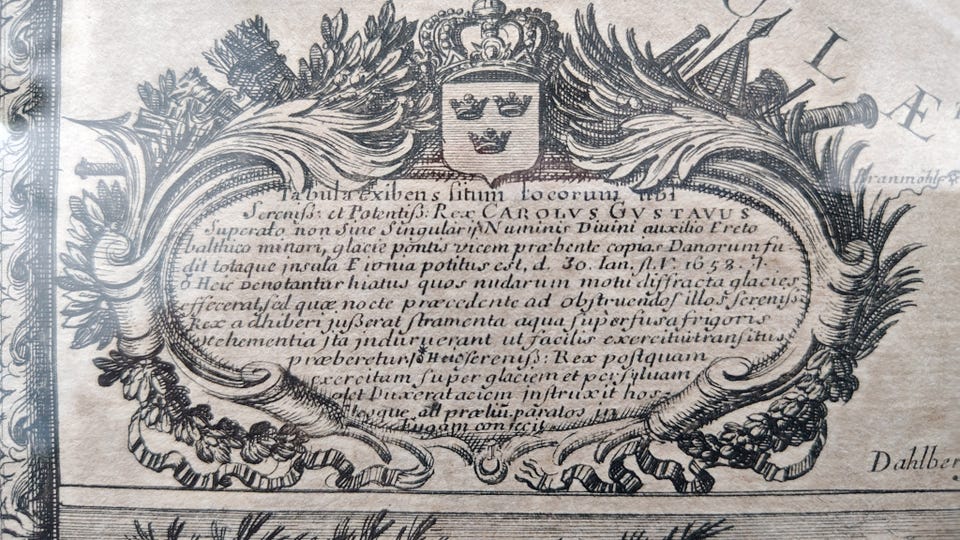 U L Æ
Branmöhls
Tabula exibens situm locorum ubi
Sereniss: et Potentiss: Rex CAROLVS GVSTAVUS
Superato non Sine Singularis Numinis Divini auxilio Freto
balthico minori, glacie pontis vicem præbente copias Danorum fu
dit totaque insula Fionia potitus est, d. 30. Ian. st. V. 1658.
Heic Denotantur hiatus quos nudarum motu diffracta glacies
effecerat, sed quæ nocte præcedente ad obstruendos illos sereniss:
Rex adhiberi jusserat stramenta aqua superfusa frigoris
vehementia ita induruerant ut facilis exercitui transitus
præberetur. Heic sereniss: Rex postquam
exercitum super glaciem et per syluam
Duxerat aciem instruxit
que ad præliū paratos in
fugam coniecit
Dahlber